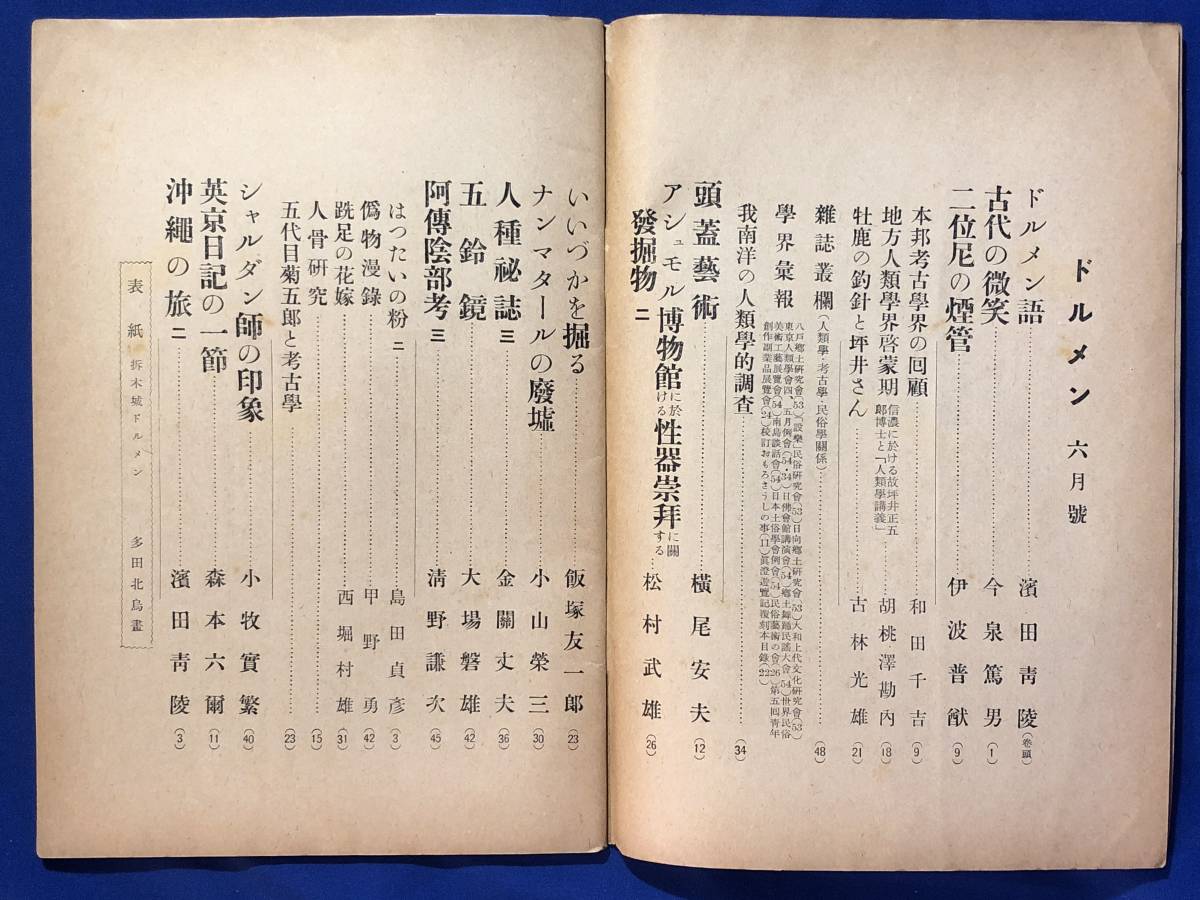 ドルメン 六月號
ドルメン語 濱田靑陵 (卷頭)
古代の微笑 今泉篤男 (1)
二位尼の煙管 伊波普猷 (9)
本邦考古學界の回顧 和田千吉 (9)
地方人類學界啓蒙期 信濃に於ける故坪井正五郎博士と「人類學講義」 胡桃澤勘內 (18)
牡鹿の釣針と坪井さん 古林光雄 (21)
雜誌叢欄 (人類學・考古學 民俗學關係) (48)
學界彙報 八戸鄕土硏究會(53)「設樂」民俗硏究會(53)日向鄕土硏究會(53)大和上代文化硏究會(53)
東京人類學會四、五月例會(54・34)日佛會館講演會(54)鄕土舞踊民謠大會(54)世界民俗
美術工藝展覽會(54)南島談話會(54)日本土俗學會例會(54)民俗藝術の會(26)第五回靑年
創作副業品展覽會(24)校訂おもろさうしの事(11)眞澄遊覽記複刻本目錄(22)
我南洋の人類學的調査 (34)
頭蓋藝術 橫尾安夫 (12)
アシュモル博物館に於ける性器崇拜に關する
發掘物 二 松村武雄 (26)
いいづかを掘る 飯塚友一郎 (23)
ナンマタールの廢墟 小山榮三 (30)
人種祕誌 三 金關丈夫 (36)
五鈴鏡 大場磐雄 (42)
阿傳陰部考 三 淸野謙次 (45)
はつたいの粉 二 島田貞彥 (3)
僞物漫錄 甲野勇 (42)
跣足の花嫁 西堀村雄 (31)
人骨硏究 (15)
五代目菊五郎と考古學 (23)
シャルダン師の印象 小牧實繁 (40)
英京日記の一節 森本六爾 (11)
沖繩の旅 二 濱田靑陵 (3)
表紙 拆木城ドルメン 多田北烏畫